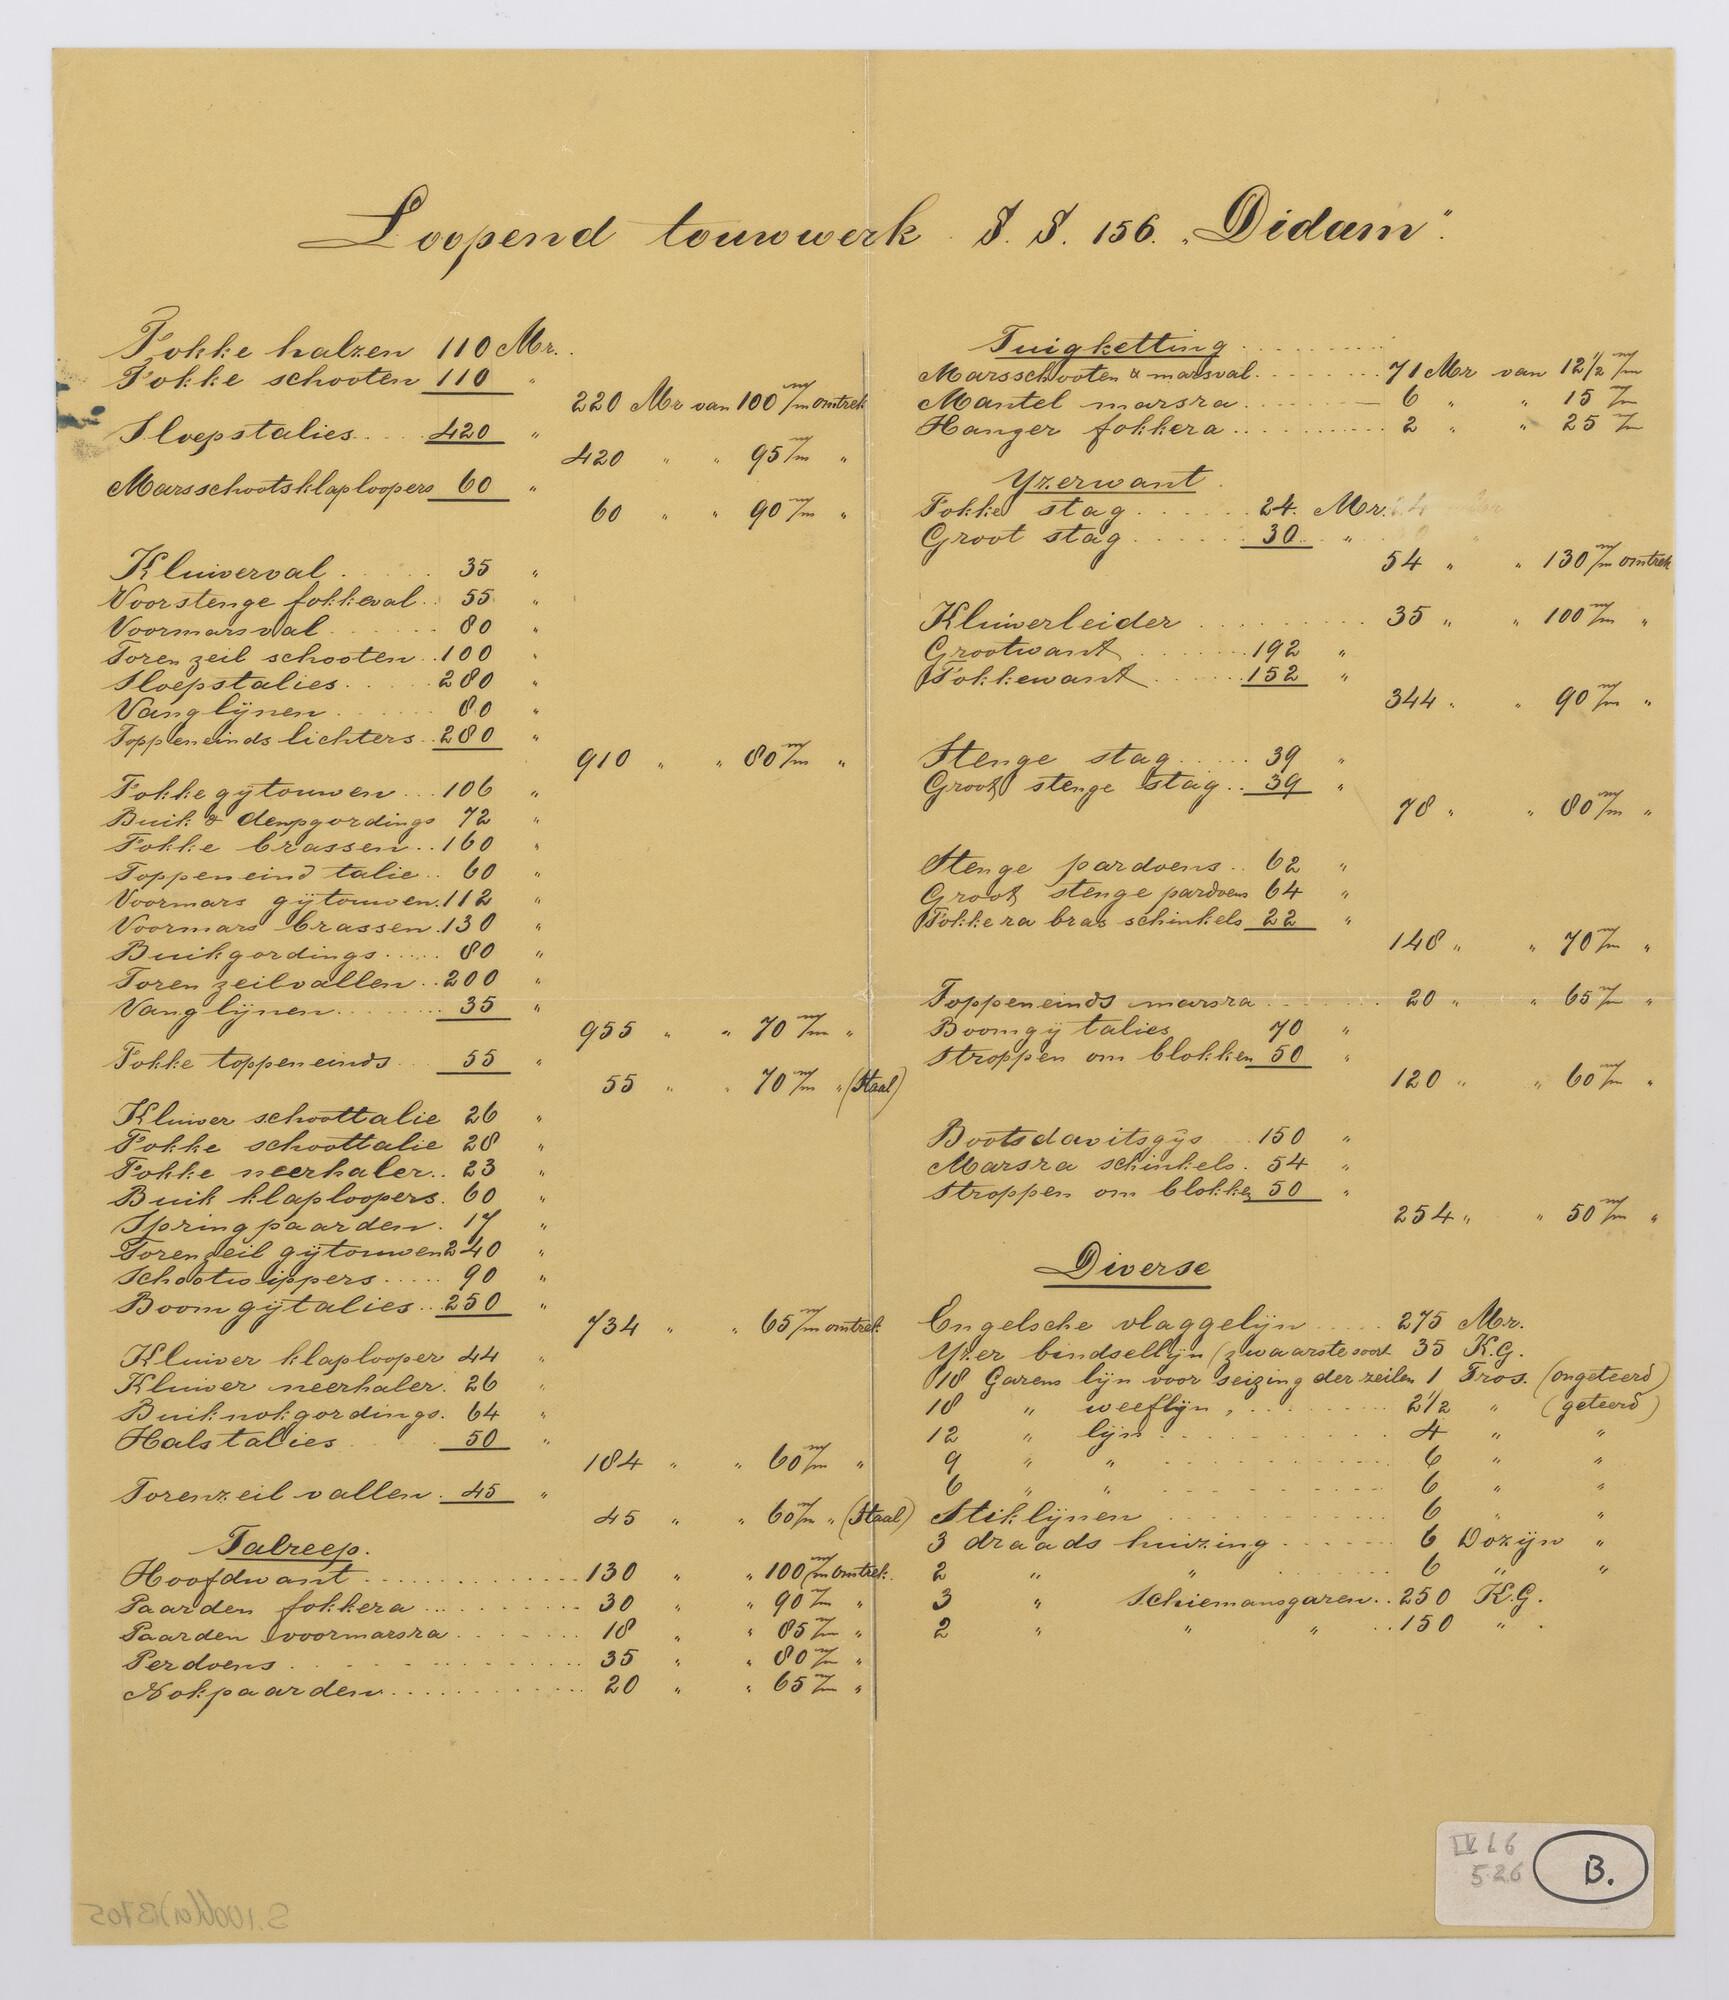 Loopend touwwerk S. S. 156. „Didam".
Fokke halzen 110 Mr.
Fokke schooten 110 "
220 Mr van 100 m/m omtrek
Sloepstalies 420 "
420 " " 95 m/m "
Marsschootsklaploopers 60 "
60 " " 90 m/m "
Kluiverval 35 "
Voorstenge fokkeval 55 "
Voormarsval 80 "
Toren zeil schooten 100 "
Sloepstalies 280 "
Vanglijnen 80 "
Toppeneinds lichters 280 "
910 " " 80 m/m "
Fokke gytouwen 106 "
Buik & dempgordings 72 "
Fokke brassen 160 "
Toppeneind talie 60 "
Voormars gijtouwen 112 "
Voormars brassen 130 "
Buikgordings 80 "
Toren zeilvallen 200 "
Vanglijnen 35 "
955 " " 70 m/m "
Fokke toppeneinds 55 "
55 " " 70 m/m " (Staal)
Kluiver schoottalie 26 "
Fokke schoottalie 28 "
Fokke neerhaler 23 "
Buik klaploopers 60 "
Springpaarden 17 "
Torenzeil gijtouwen 240 "
Schootwippers 90 "
Boomgijtalies 250 "
734 " " 65 m/m omtrek
Kluiver klaplooper 44 "
Kluiver neerhaler 26 "
Buiknokgordings 64 "
Halstalies 50 "
184 " " 60 m/m "
Torenzeil vallen 45 "
45 " " 60 m/m " (Staal)
Talreep.
Hoofdwant 130 " " 100 m/m omtrek.
Paarden fokkera 30 " " 90 m/m "
Paarden voormarsra 18 " " 85 m/m "
Perdoens 35 " " 80 m/m "
Nokpaarden 20 " " 65 m/m "
Tuigketting
Marsschooten & marsval 71 Mr van 12 1/2 m/m
Mantel marsra 6 " " 15 m/m
Hanger fokkera 2 " " 25 m/m
Yzerwant
Fokke stag 24 Mr.
Groot stag 30 "
54 " " 130 m/m omtrek
Kluiverleider 35 " " 100 m/m "
Grootwant 192 "
Fokkewant 152 "
344 " " 90 m/m "
Stenge stag 39 "
Groot stenge stag 39 "
78 " " 80 m/m "
Stenge pardoens 62 "
Groot stenge pardoens 64 "
Fokkera bras schinkels 22 "
148 " " 70 m/m "
Toppeneinds marsra 20 " " 65 m/m "
Boomgy talies 70 "
Stroppen om blokken 50 "
120 " " 60 m/m "
Bootsdavitsgys 150 "
Marsra schinkels 54 "
Stroppen om blokken 50 "
254 " " 50 m/m "
Diverse
Engelsche vlaggelijn 275 Mr.
Yzer bindsellijn (zwaarste soort 35 K.G.
18 Garens lijn voor seizing der zeilen 1 Tros. (ongeteerd)
18 " weeflijn " 2 1/2 " (geteerd)
12 " lijn 4 " "
9 " " 6 " "
6 " " 6 " "
Stiklijnen 6 " "
3 draads huizing 6 Dozijn "
2 " " 6 " "
3 " Schiemansgaren 250 K.G.
2 " " " 150 "
IV 6
526
B.